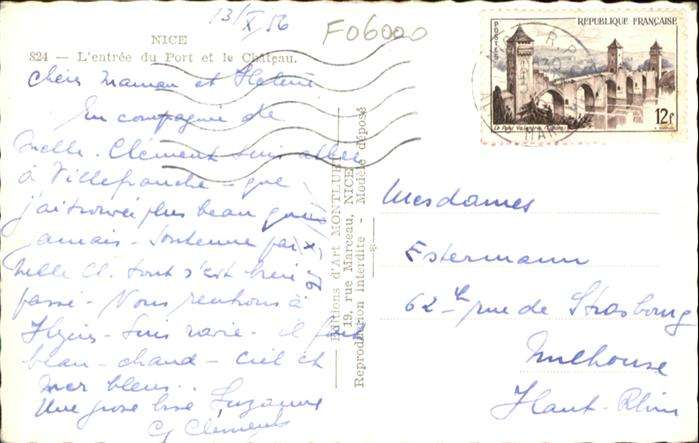 13/X/56
F06000
NICE
824 — L'entrée du Port et le Château.
Chère Maman et Hélène
En compagnie de
Melle. Clément suis allée
à Villefranche - que
j'ai trouvée plus belle que
jamais - Soutenue par
Melle Cl. tout s'est bien
passé - Nous rentrons à
- suis ravie - il fait
beau - chaud - ciel et
mer bleus..
Une grosse bise Suzanne
Cg Clément
Editions d'Art MONTLUET
19, rue Marceau, NICE
Reproduction interdite - Modèle déposé
POSTES
REPUBLIQUE FRANÇAISE
Le Pont Valentré (Cahors)
12F
Mesdames
Estermann
62 rue de Strasbourg
Mulhouse
Haut-Rhin